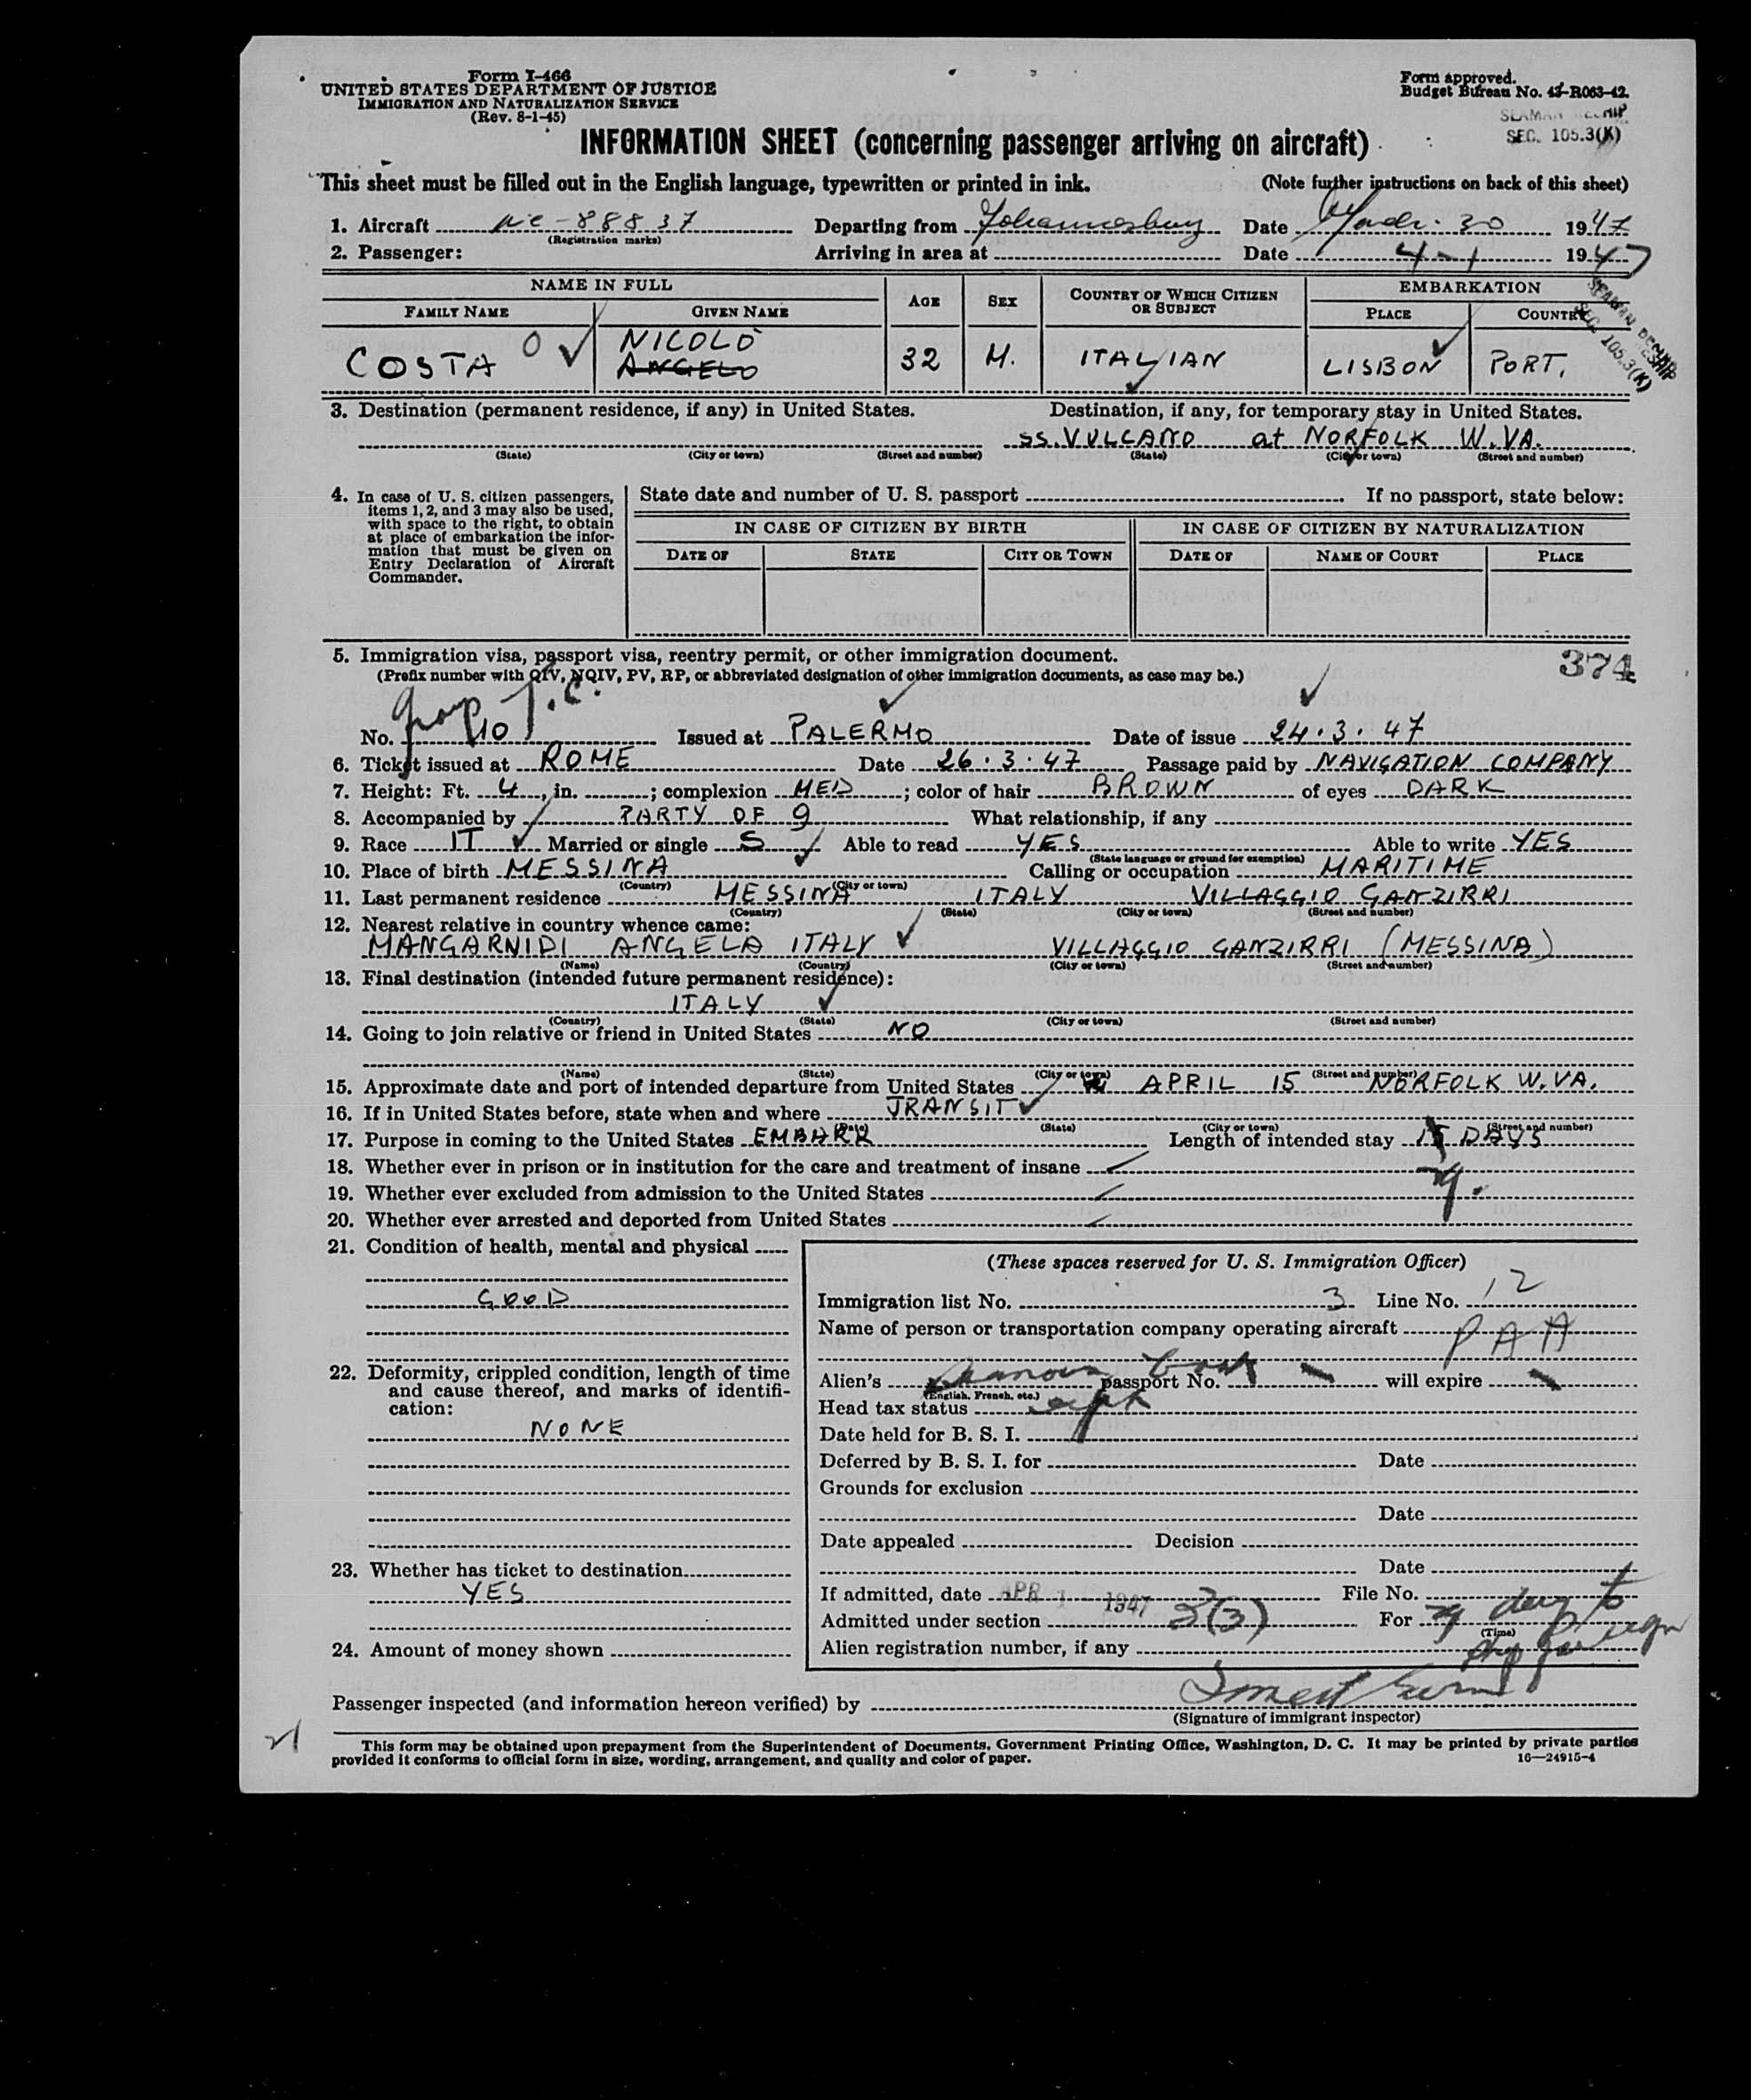 Form I-466
UNITED STATES DEPARTMENT OF JUSTICE
IMMIGRATION AND NATURALIZATION SERVICE
(Rev. 8-1-45)
Form approved.
Budget Bureau No. 43-R063-42.
SEAMAN
SEC. 105.3(K)
INFORMATION SHEET (concerning passenger arriving on aircraft)
This sheet must be filled out in the English language, typewritten or printed in ink. (Note further instructions on back of this sheet)
1. Aircraft NC-88837 Departing from Johannesburg Date 30 1947
(Registration marks)
2. Passenger: Arriving in area at Date 4-1 1947
NAME IN FULL AGE SEX COUNTRY OF WHICH CITIZEN OR SUBJECT EMBARKATION
FAMILY NAME GIVEN NAME PLACE COUNTRY
SEC. 105.3(K)
COSTA O NICOLÒ ANGELO 32 M. ITALIAN LISBON PORT.
3. Destination (permanent residence, if any) in United States. Destination, if any, for temporary stay in United States.
SS. VULCANO at NORFOLK W. VA.
(State) (City or town) (Street and number) (State) (City or town) (Street and number)
4. In case of U. S. citizen passengers, items 1, 2, and 3 may also be used, with space to the right, to obtain at place of embarkation the information that must be given on Entry Declaration of Aircraft Commander.
State date and number of U. S. passport If no passport, state below:
IN CASE OF CITIZEN BY BIRTH IN CASE OF CITIZEN BY NATURALIZATION
DATE OF STATE CITY OR TOWN DATE OF NAME OF COURT PLACE
5. Immigration visa, passport visa, reentry permit, or other immigration document. 374
(Prefix number with QIV, NQIV, PV, RP, or abbreviated designation of other immigration documents, as case may be.)
Group T.C.
No. 10 Issued at PALERMO Date of issue 24.3.47
6. Ticket issued at ROME Date 26.3.47 Passage paid by NAVIGATION COMPANY
7. Height: Ft. 4, in. ; complexion MED ; color of hair BROWN of eyes DARK
8. Accompanied by PARTY OF 9 What relationship, if any
9. Race IT Married or single S Able to read YES Able to write YES
(State language or ground for exemption)
10. Place of birth MESSINA Calling or occupation MARITIME
(Country) (City or town)
11. Last permanent residence MESSINA ITALY VILLAGGIO GANZIRRI
(Country) (State) (City or town) (Street and number)
12. Nearest relative in country whence came:
MANGARNIDI ANGELA ITALY VILLAGGIO GANZIRRI (MESSINA)
(Name) (Country) (City or town) (Street and number)
13. Final destination (intended future permanent residence):
ITALY
(Country) (State) (City or town) (Street and number)
14. Going to join relative or friend in United States NO
(Name) (State) (City or town) (Street and number)
15. Approximate date and port of intended departure from United States APRIL 15 NORFOLK W. VA.
16. If in United States before, state when and where TRANSIT
(Date) (State) (City or town) (Street and number)
17. Purpose in coming to the United States EMBARK Length of intended stay 15 DAYS
29.
18. Whether ever in prison or in institution for the care and treatment of insane
19. Whether ever excluded from admission to the United States
20. Whether ever arrested and deported from United States
21. Condition of health, mental and physical
GOOD
22. Deformity, crippled condition, length of time and cause thereof, and marks of identification:
NONE
23. Whether has ticket to destination
YES
24. Amount of money shown
(These spaces reserved for U. S. Immigration Officer)
Immigration list No. 3 Line No. 12
Name of person or transportation company operating aircraft PAA
Alien's passport No. — will expire —
(English, French, etc.)
Head tax status
Date held for B. S. I.
Deferred by B. S. I. for Date
Grounds for exclusion
Date
Date appealed Decision
Date
If admitted, date APR 1 1947 File No.
Admitted under section 3(3) For 29 days to
(Time)
Alien registration number, if any
Passenger inspected (and information hereon verified) by
(Signature of immigrant inspector)
This form may be obtained upon prepayment from the Superintendent of Documents, Government Printing Office, Washington, D. C. It may be printed by private parties
provided it conforms to official form in size, wording, arrangement, and quality and color of paper. 16—24915-4